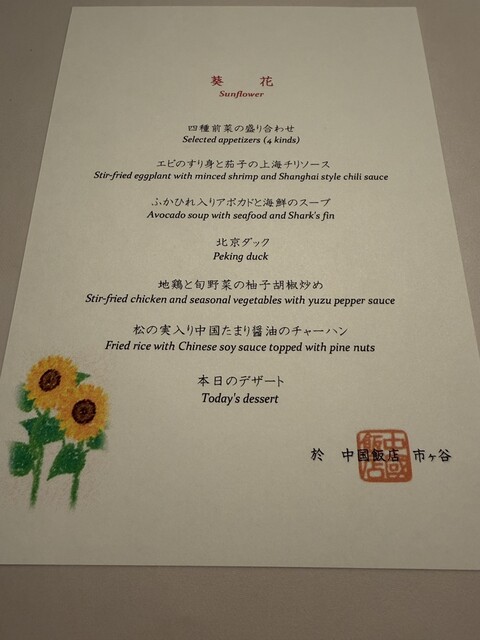 葵 花
Sunflower
四種前菜の盛り合わせ
Selected appetizers (4 kinds)
エビのすり身と茄子の上海チリソース
Stir-fried eggplant with minced shrimp and Shanghai style chili sauce
ふかひれ入りアボカドと海鮮のスープ
Avocado soup with seafood and Shark's fin
北京ダック
Peking duck
地鶏と旬野菜の柚子胡椒炒め
Stir-fried chicken and seasonal vegetables with yuzu pepper sauce
松の実入り中国たまり醤油のチャーハン
Fried rice with Chinese soy sauce topped with pine nuts
本日のデザート
Today's dessert
於 中国飯店 市ヶ谷
中國飯店